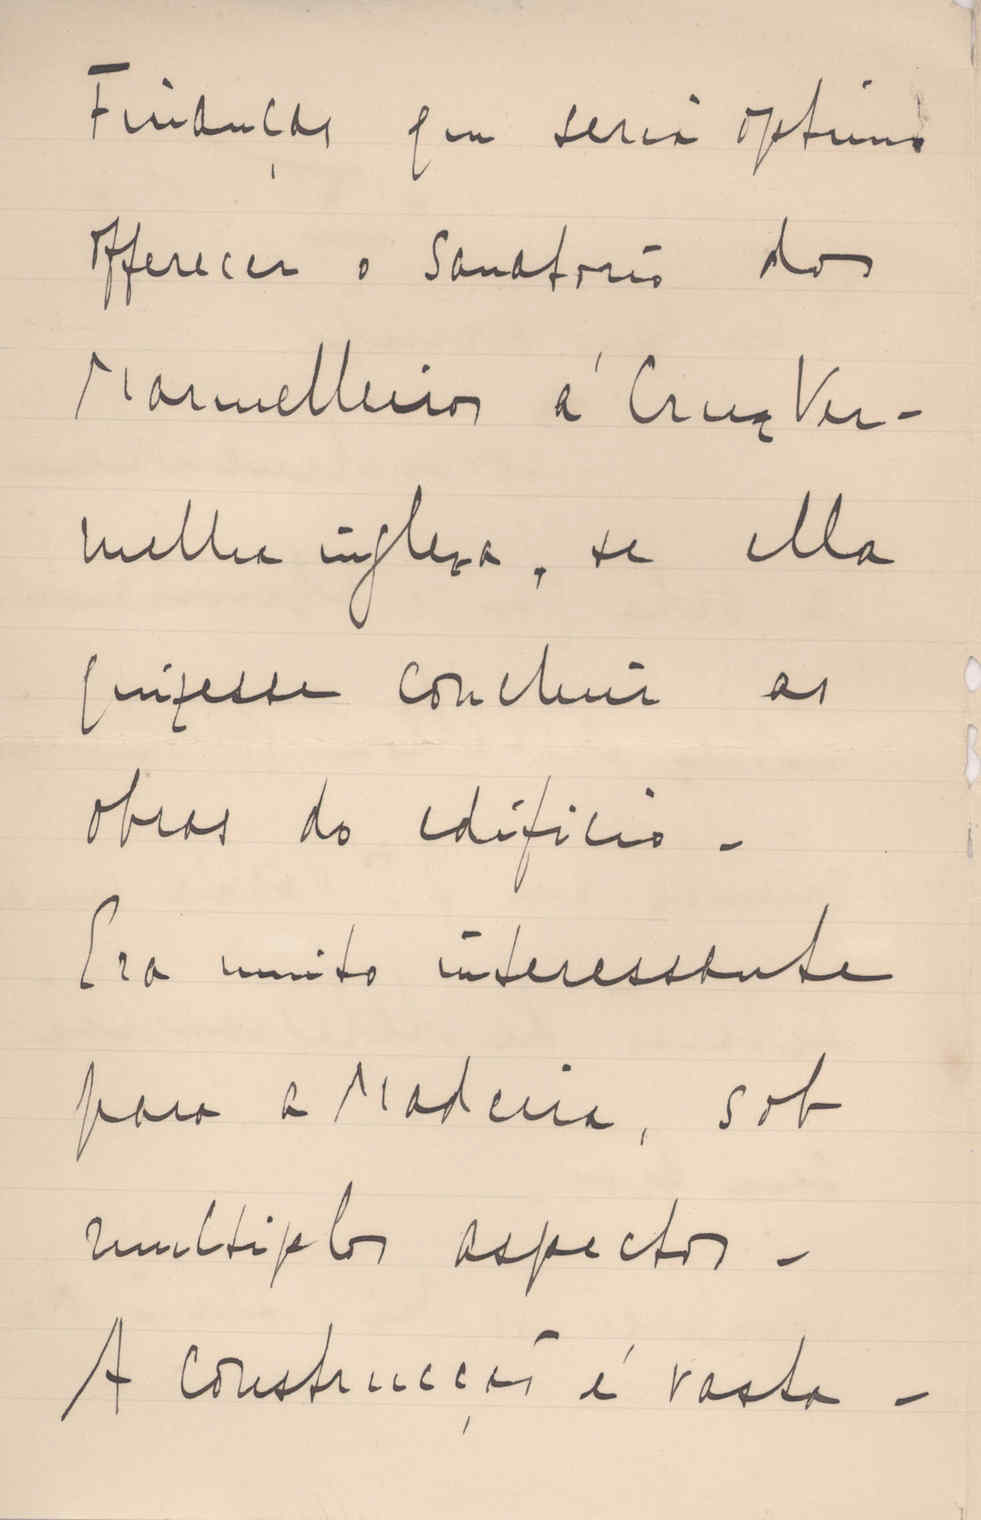 Finanças que seria optimo
offerecer o Sanatorio dos
Marmelleiros á Cruz Ver-
melha ingleza, se ella
quizesse concluir as
obras do edificio -
Era muito interessante
para a Madeira, sob
multiplos aspectos -
A construcção é vasta -